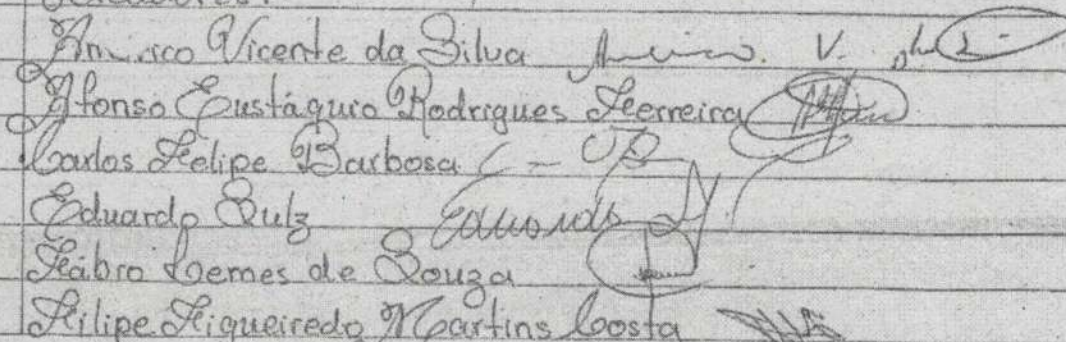 Vicente da Silva V.
Afonso Eustáquio Rodrigues Ferreira
Carlos Felipe Barbosa
Eduardo Sulz Eduardo
Fábio Lemes de Souza
Filipe Figueiredo Martins Costa